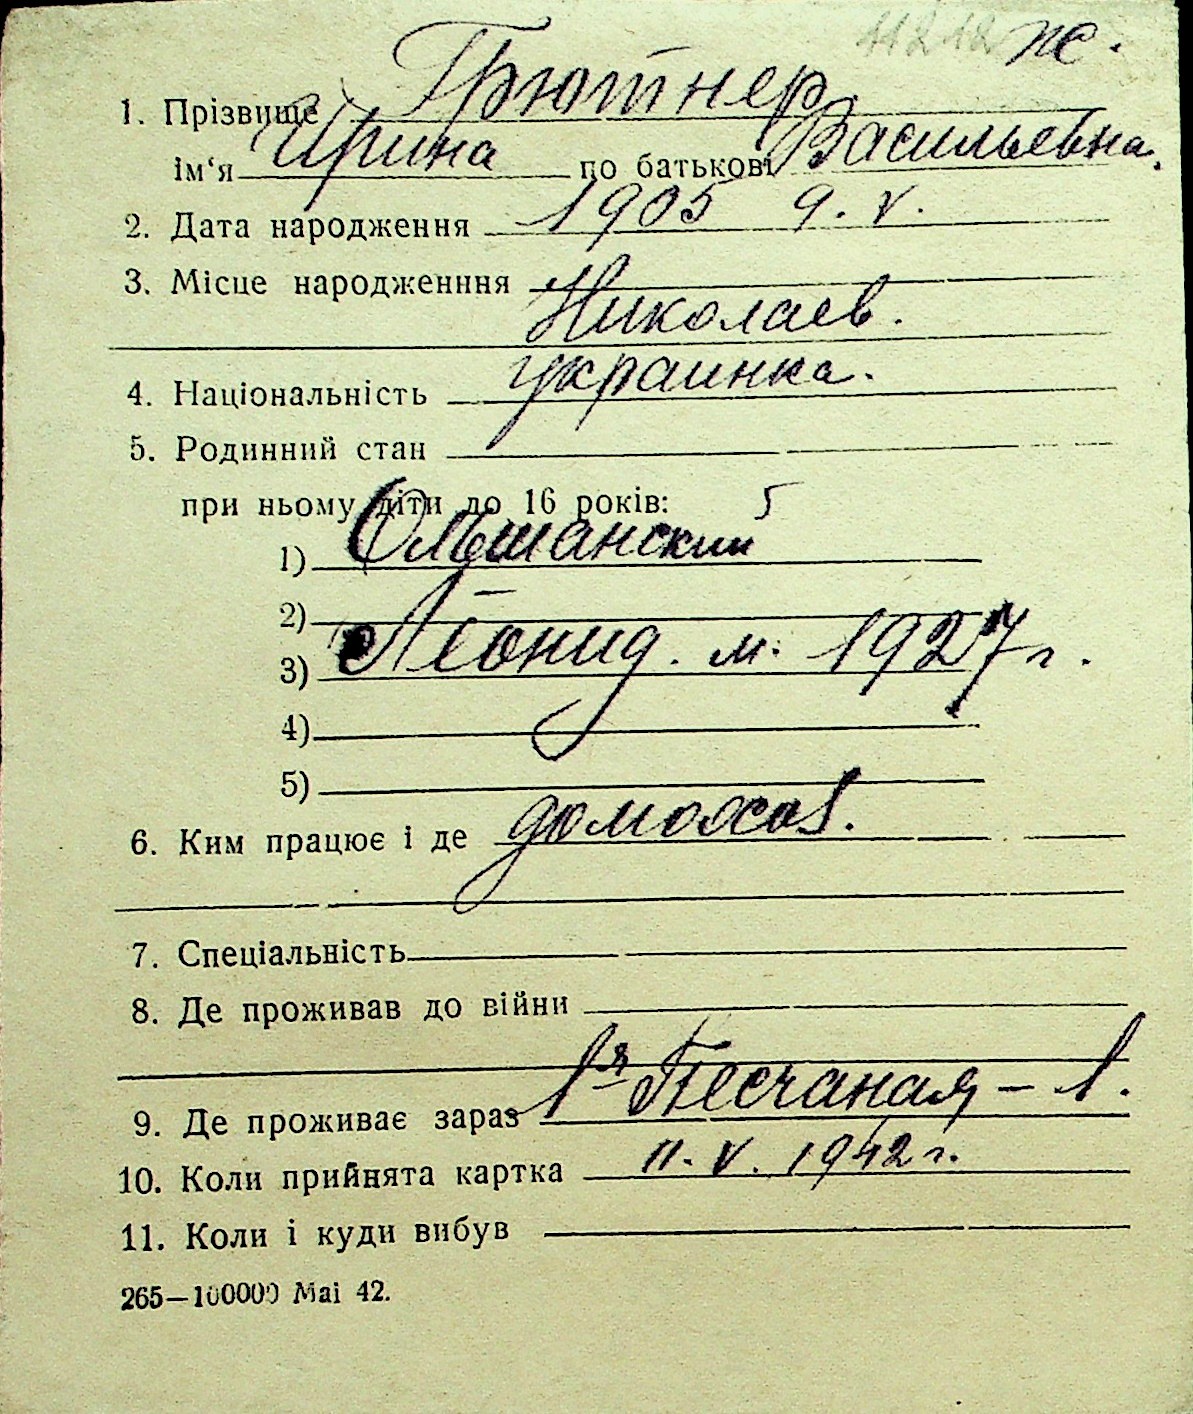 11212 ж.
1. Прізвище Грютнер
ім‘я Ирина по батькові Васильевна.
2. Дата народження 1905 9. V.
3. Місце народженння
Николаев.
4. Національність украинка.
5. Родинний стан
при ньому діти до 16 років: 5
1) Ольшанский
2)
3) Леонид. м. 1927 г.
4)
5)
6. Ким працює і де домохоз.
7. Спеціальність
8. Де проживав до війни
9. Де проживає зараз 1я Песчаная – 1.
10. Коли прийнята картка 11. V. 1942 г.
11. Коли і куди вибув
265—100000 Mai 42.